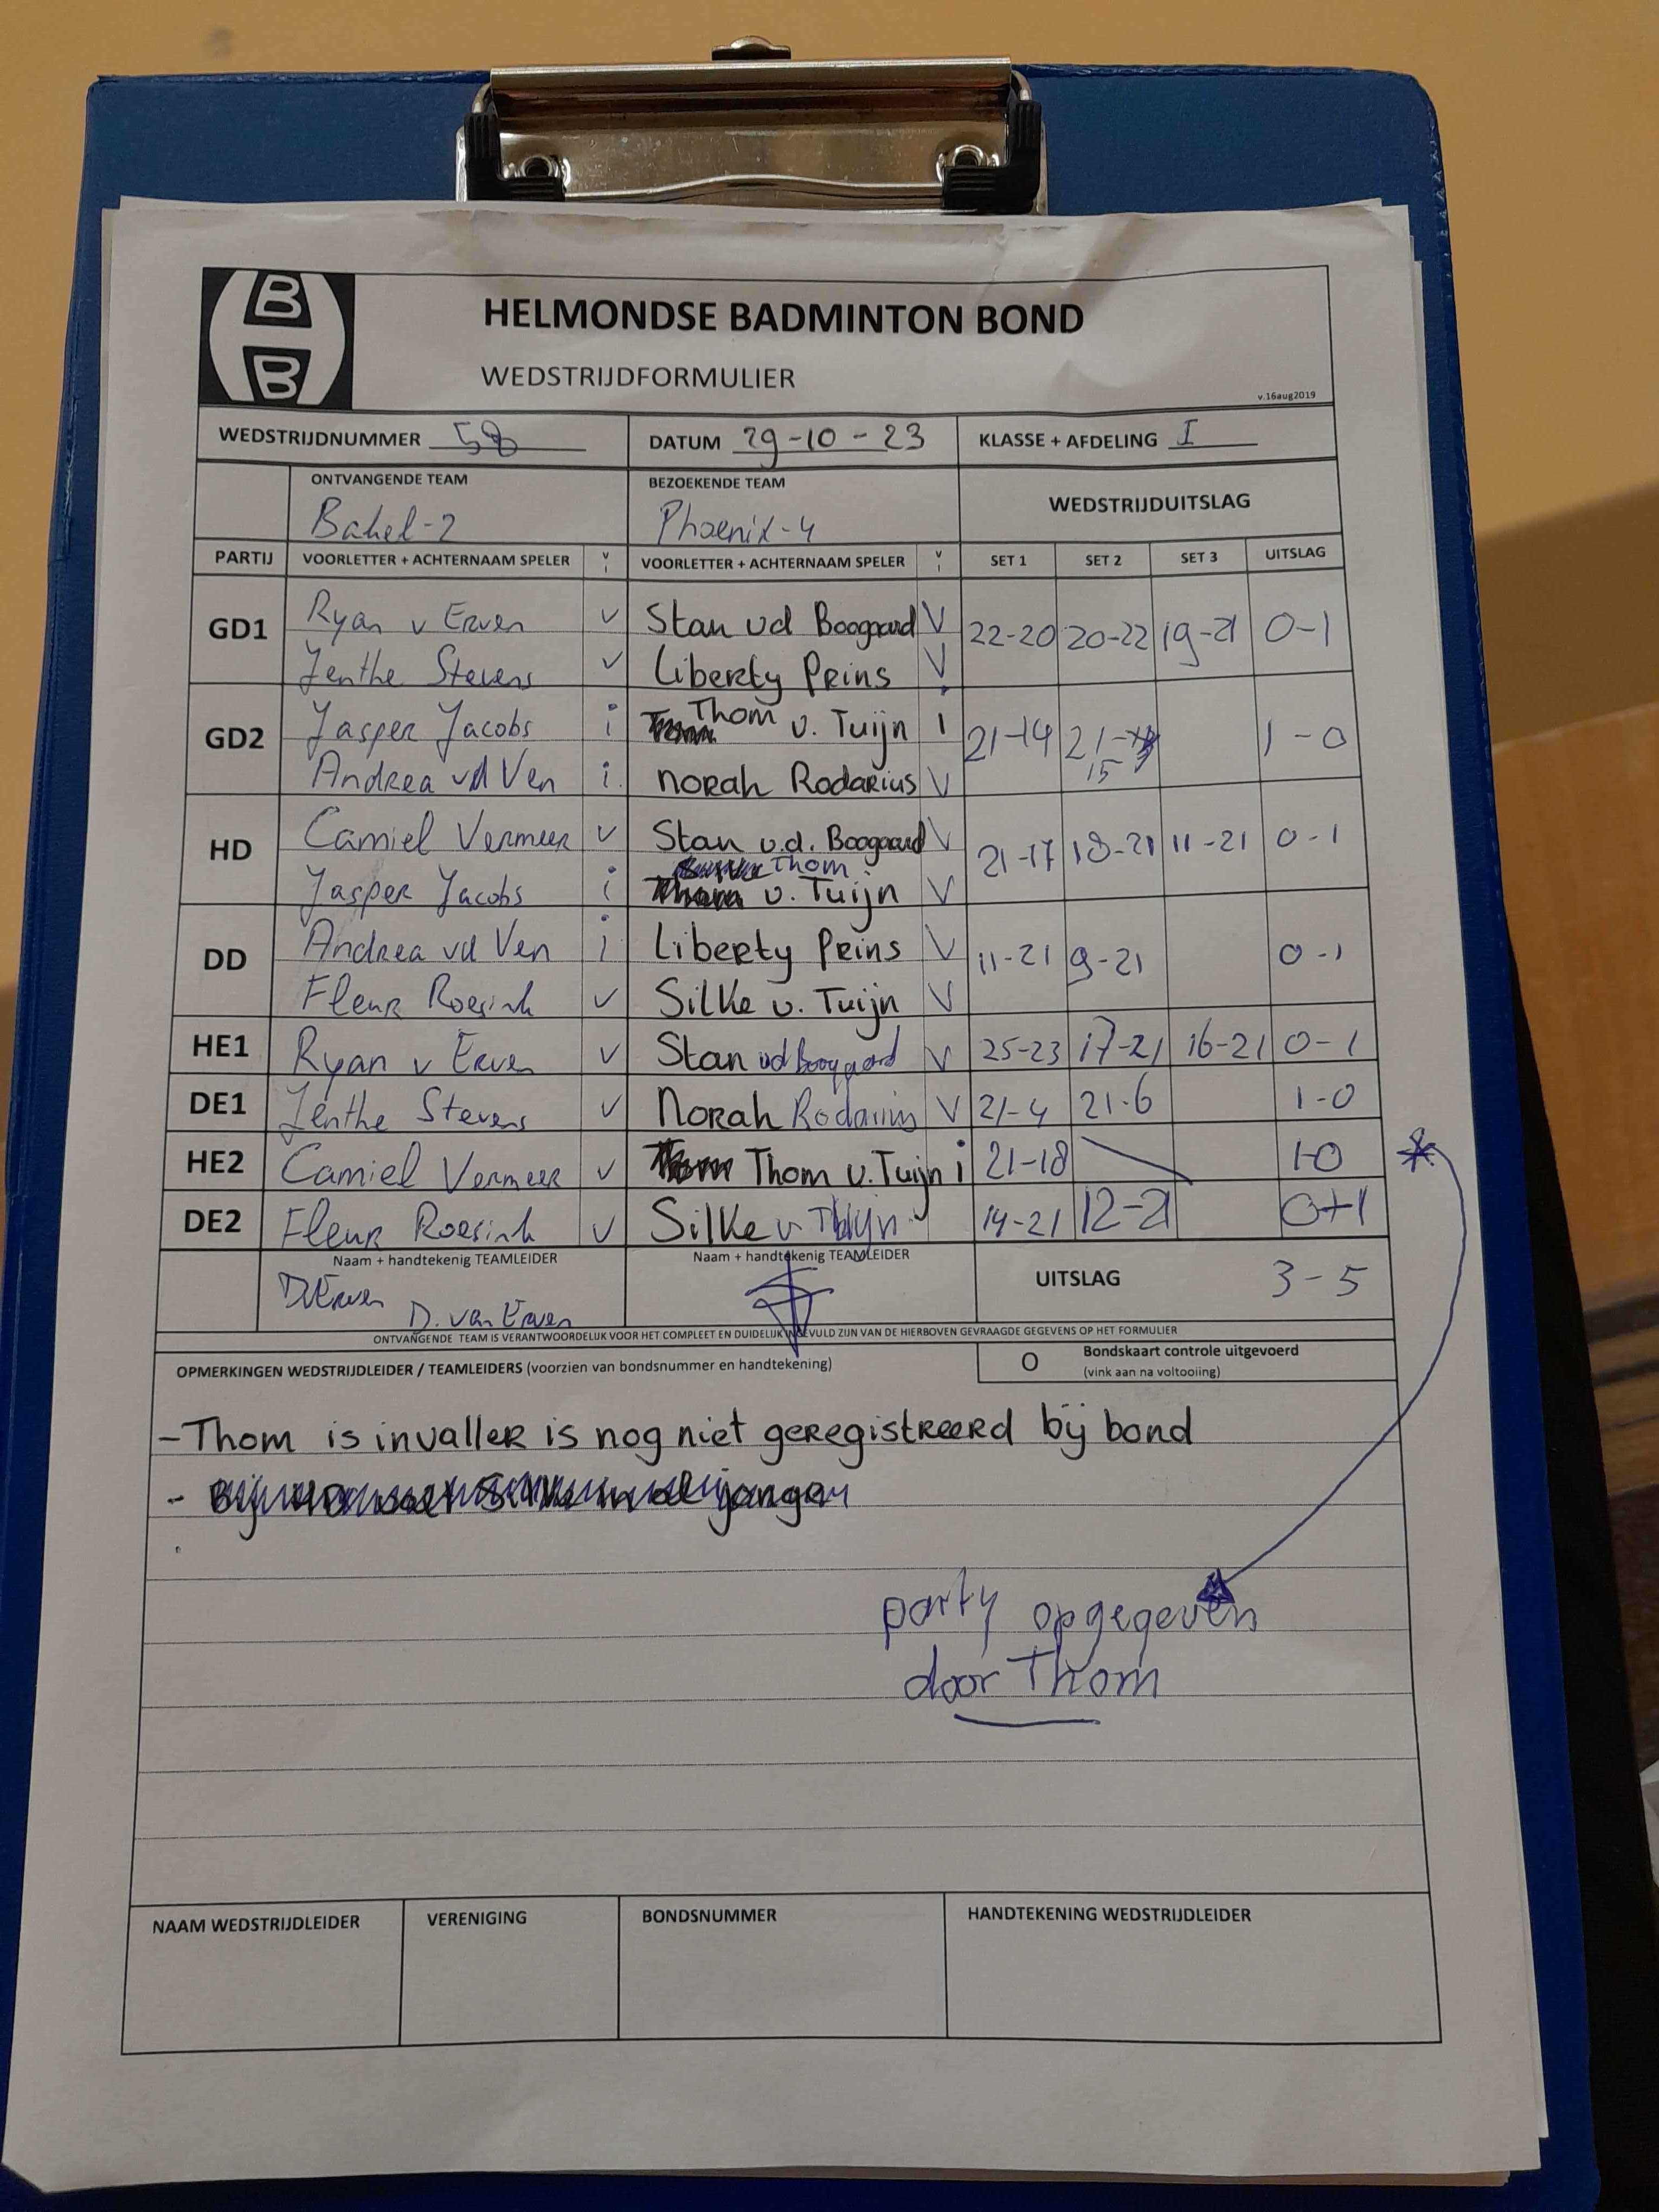 B
B
HELMONDSE BADMINTON BOND
WEDSTRIJDFORMULIER
v.16aug2019
WEDSTRIJDNUMMER 58 DATUM 29-10-23 KLASSE + AFDELING I
ONTVANGENDE TEAM BEZOEKENDE TEAM WEDSTRIJDUITSLAG
Bakel-2 Phoenix-4
PARTIJ VOORLETTER + ACHTERNAAM SPELER V I VOORLETTER + ACHTERNAAM SPELER V I SET 1 SET 2 SET 3 UITSLAG
GD1 Ryan v Erven v Stan vd Boogaard V 22-20 20-22 19-21 0-1
Jenthe Stevens v Liberty Prins V
GD2 Jasper Jacobs i Thom v. Tuijn i 21-14 21-15 1-0
Andrea vd Ven i norah Rodarius V
HD Camiel Vermeer v Stan v.d. Boogaard V 21-17 18-21 11-21 0-1
Jasper Jacobs i Thom v. Tuijn V
DD Andrea vd Ven i Liberty Prins V 11-21 9-21 0-1
Fleur Roesink v Silke v. Tuijn V
HE1 Ryan v Erven v Stan vd Boogaard V 25-23 17-21 16-21 0-1
DE1 Jenthe Stevens v Norah Rodarius V 21-4 21-6 1-0
HE2 Camiel Vermeer v Thom v. Tuijn i 21-18 1-0 *
DE2 Fleur Roesink v Silke v Tuijn 14-21 12-21 0-1
Naam + handtekenig TEAMLEIDER Naam + handtekenig TEAMLEIDER UITSLAG 3-5
DErven D. van Erven
ONTVANGENDE TEAM IS VERANTWOORDELIJK VOOR HET COMPLEET EN DUIDELIJK INGEVULD ZIJN VAN DE HIERBOVEN GEVRAAGDE GEGEVENS OP HET FORMULIER
OPMERKINGEN WEDSTRIJDLEIDER / TEAMLEIDERS (voorzien van bondsnummer en handtekening) O Bondskaart controle uitgevoerd
(vink aan na voltooiing)
- Thom is invaller is nog niet geregistreerd bij bond
-
party opgegeven
door Thom
NAAM WEDSTRIJDLEIDER VERENIGING BONDSNUMMER HANDTEKENING WEDSTRIJDLEIDER